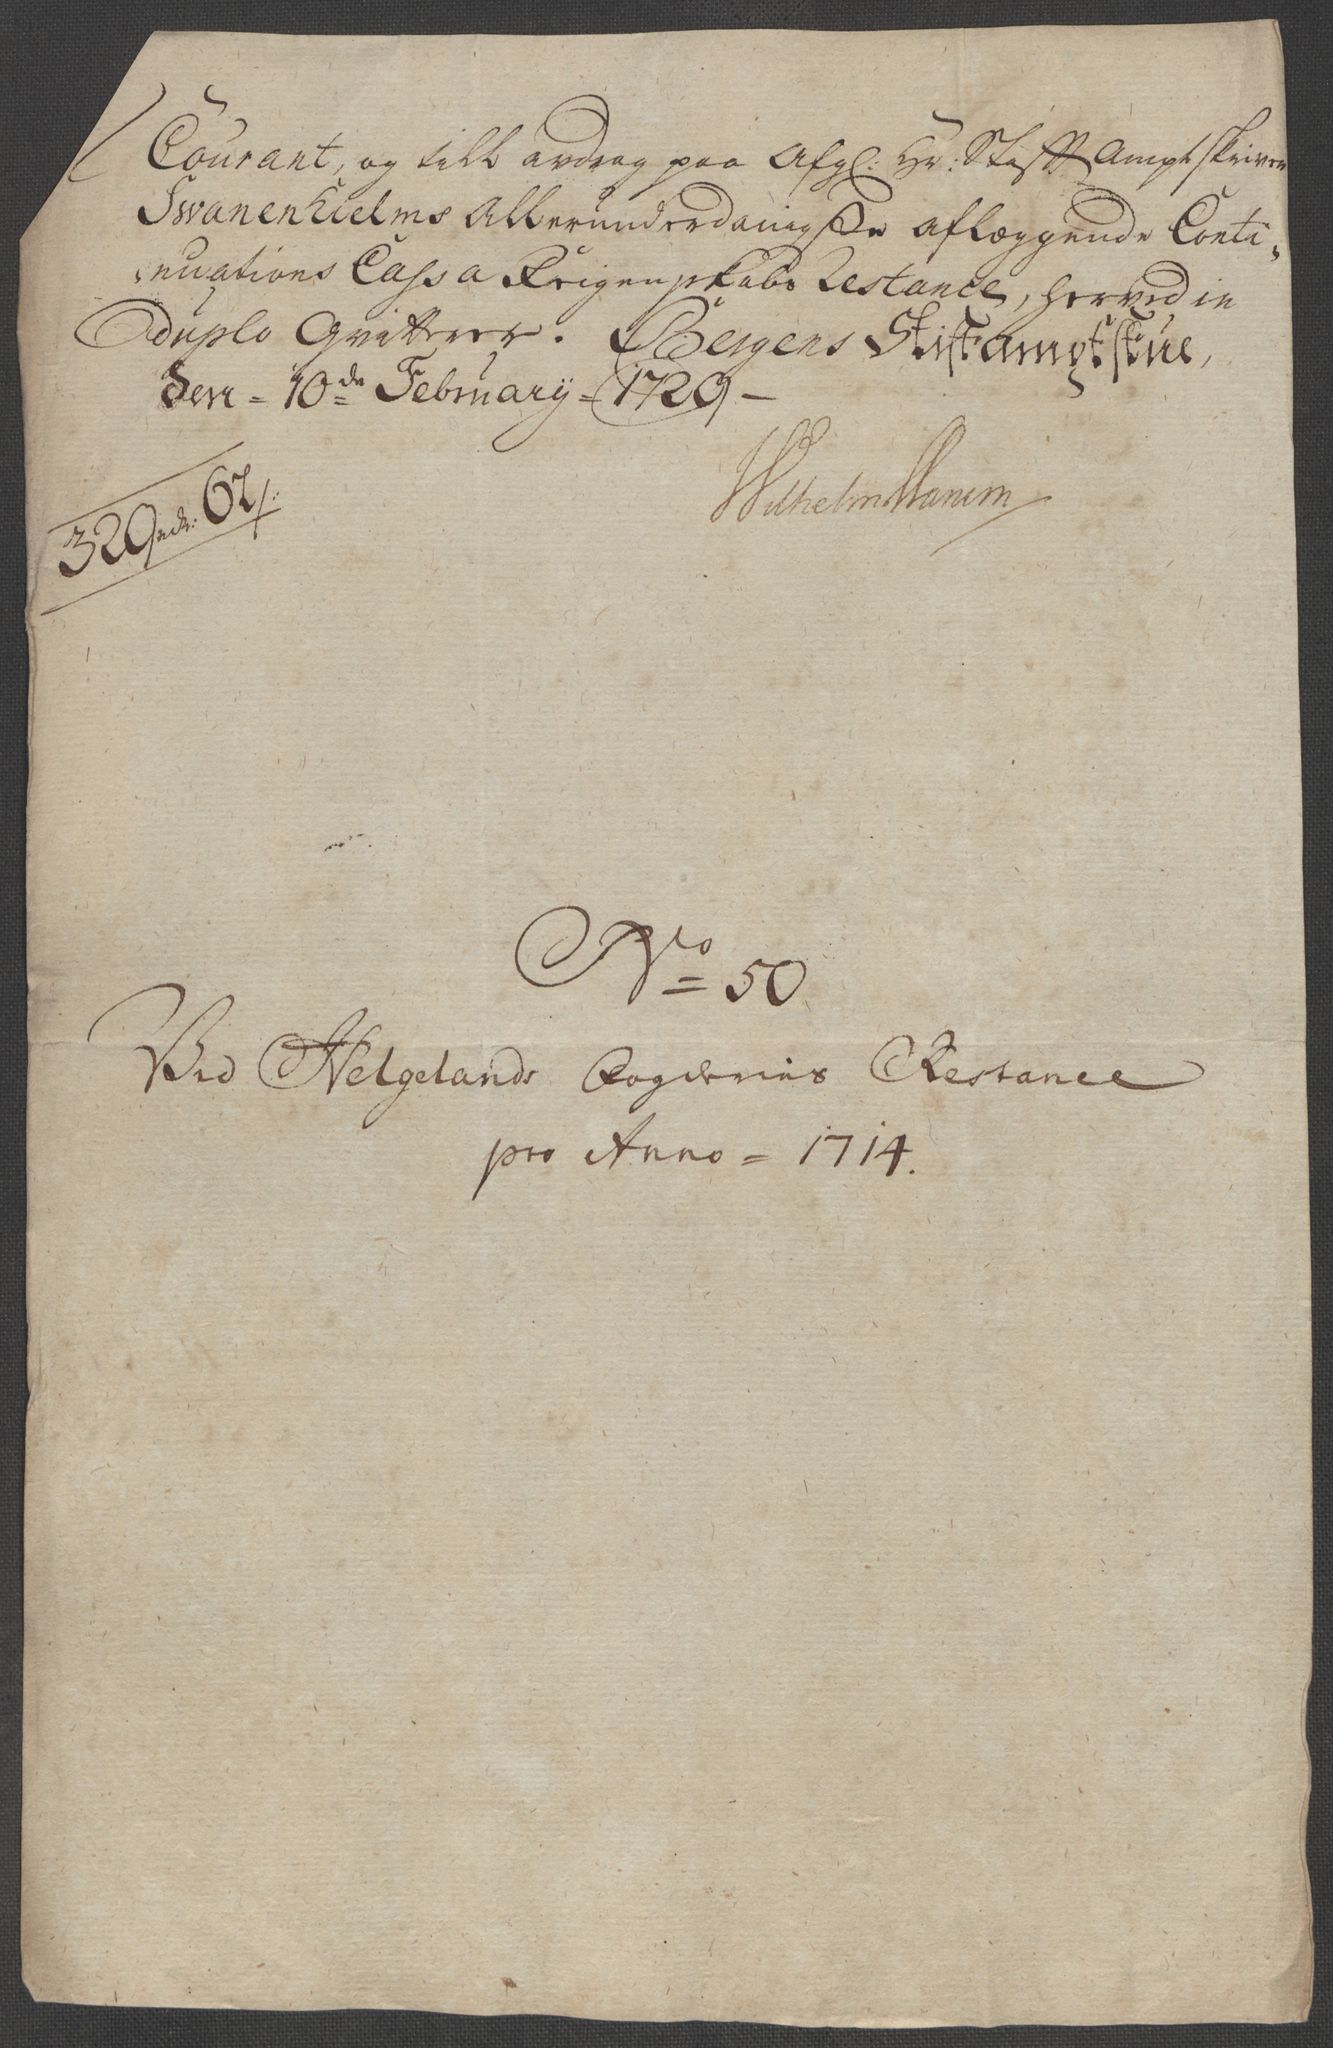 Courant, og till avdrag paa Afgl: Hr: Stift Ampt skriver
Swanenhielms Allerunderdanigste aflæggende Conti-
nuations Cassa Reigenskabs Restance, herved in
duplo Qvitterer. Bergens Stiftamptstue,
den = 10de February = 1720 –
320 rdr: 62 s:
Wilhelm Hanem
No = 50
Ved Helgelands Fogderies Restance
pro Anno = 1714.